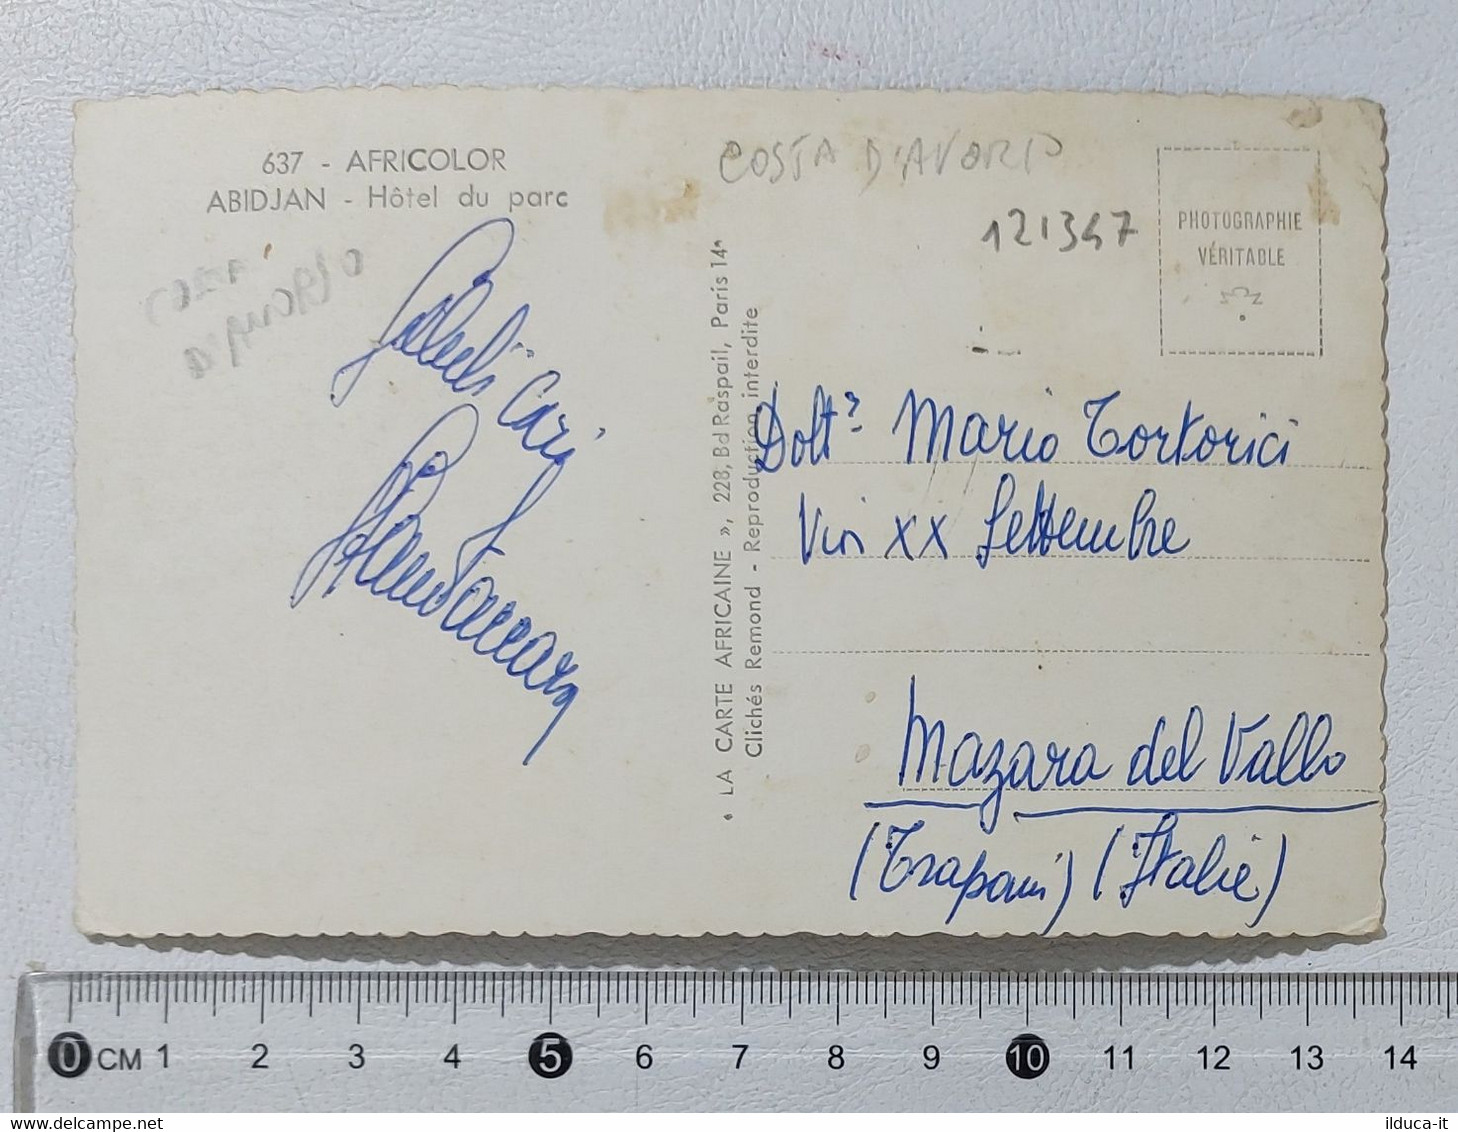 637 - AFRICOLOR
ABIDJAN - Hôtel du parc
COSTA D'AVORIO
121347
PHOTOGRAPHIE
VÉRITABLE
Saluti cari
« LA CARTE AFRICAINE », 228, Bd Raspail, Paris 14e
Clichés Remond - Reproduction interdite
Dott. Mario Tortorici
Via XX Settembre
Mazara del Vallo
(Trapani) (Italie)
0 CM 1 2 3 4 5 6 7 8 9 10 11 12 13 14
ilduca-it